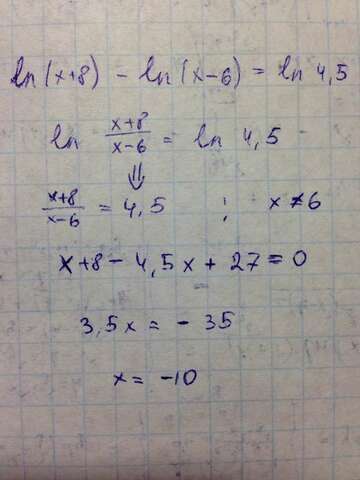 ln (x+8) - ln (x-6) = ln 4,5
ln (x+8)/(x-6) = ln 4,5
⇓
(x+8)/(x-6) = 4,5 ; x ≠ 6
x+8 - 4,5x + 27 = 0
3,5x = - 35
x = -10